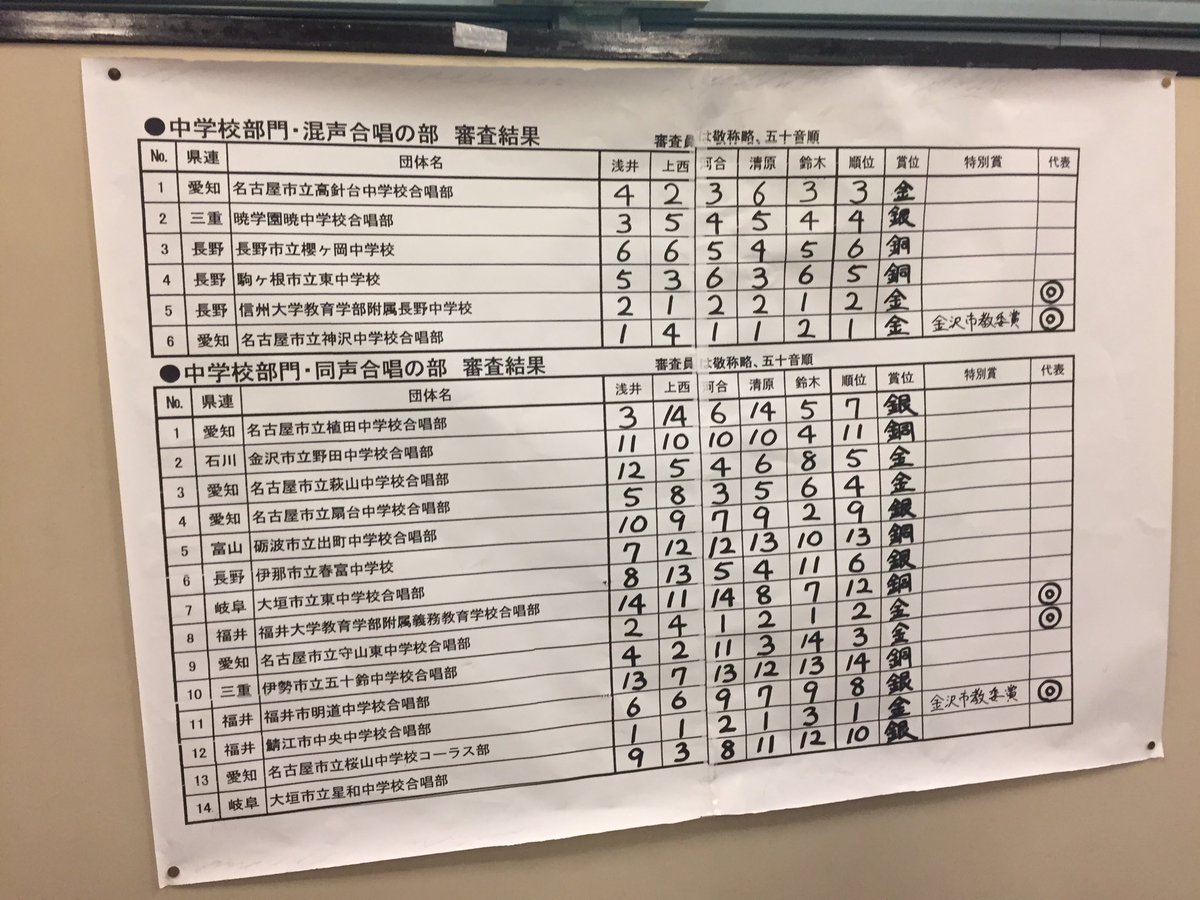 ●中学校部門・混声合唱の部 審査結果 審査員は敬称略、五十音順
No. 県連 団体名 浅井 上西 河合 清原 鈴木 順位 賞位 特別賞 代表
1 愛知 名古屋市立高針台中学校合唱部 4 2 3 6 3 3 金
2 三重 暁学園暁中学校合唱部 3 5 4 5 4 4 銀
3 長野 長野市立櫻ヶ岡中学校 6 6 5 4 5 6 銅
4 長野 駒ヶ根市立東中学校 5 3 6 3 6 5 銅
5 長野 信州大学教育学部附属長野中学校 2 1 2 2 1 2 金 ◎
6 愛知 名古屋市立神沢中学校合唱部 1 4 1 1 2 1 金 金沢市教委賞 ◎
●中学校部門・同声合唱の部 審査結果 審査員は敬称略、五十音順
No. 県連 団体名 浅井 上西 河合 清原 鈴木 順位 賞位 特別賞 代表
1 愛知 名古屋市立植田中学校合唱部 3 14 6 14 5 7 銀
2 石川 金沢市立野田中学校合唱部 11 10 10 10 4 11 銅
3 愛知 名古屋市立萩山中学校合唱部 12 5 4 6 8 5 金
4 愛知 名古屋市立扇台中学校合唱部 5 8 3 5 6 4 金
5 富山 砺波市立出町中学校合唱部 10 9 7 9 2 9 銀
6 長野 伊那市立春富中学校 7 12 12 13 10 13 銅
7 岐阜 大垣市立東中学校合唱部 8 13 5 4 11 6 銀
8 福井 福井大学教育学部附属義務教育学校合唱部 14 11 14 8 7 12 銅
9 愛知 名古屋市立守山東中学校合唱部 2 4 1 2 1 2 金 ◎
10 三重 伊勢市立五十鈴中学校合唱部 4 2 11 3 14 3 金 ◎
11 福井 福井市明道中学校合唱部 13 7 13 12 13 14 銅
12 福井 鯖江市中央中学校合唱部 6 6 9 7 9 8 銀
13 愛知 名古屋市立桜山中学校コーラス部 1 1 2 1 3 1 金 金沢市教委賞 ◎
14 岐阜 大垣市立星和中学校合唱部 9 3 8 11 12 10 銀